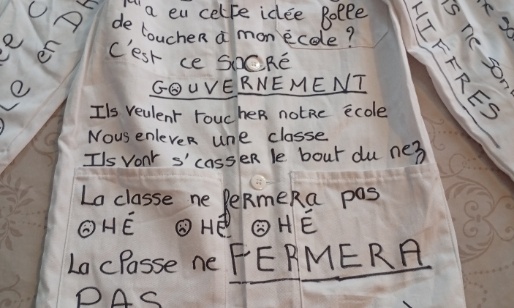 a eu cette idée folle
de toucher à mon école ?
C'est ce SACRÉ
GOUVERNEMENT
Ils veulent toucher notre école
Nous enlever une classe
Ils vont s'casser le bout du nez
La classe ne fermera pas
OHÉ OHÉ OHÉ
La classe ne FERMERA
PAS
en
HIFFRES
ne sont